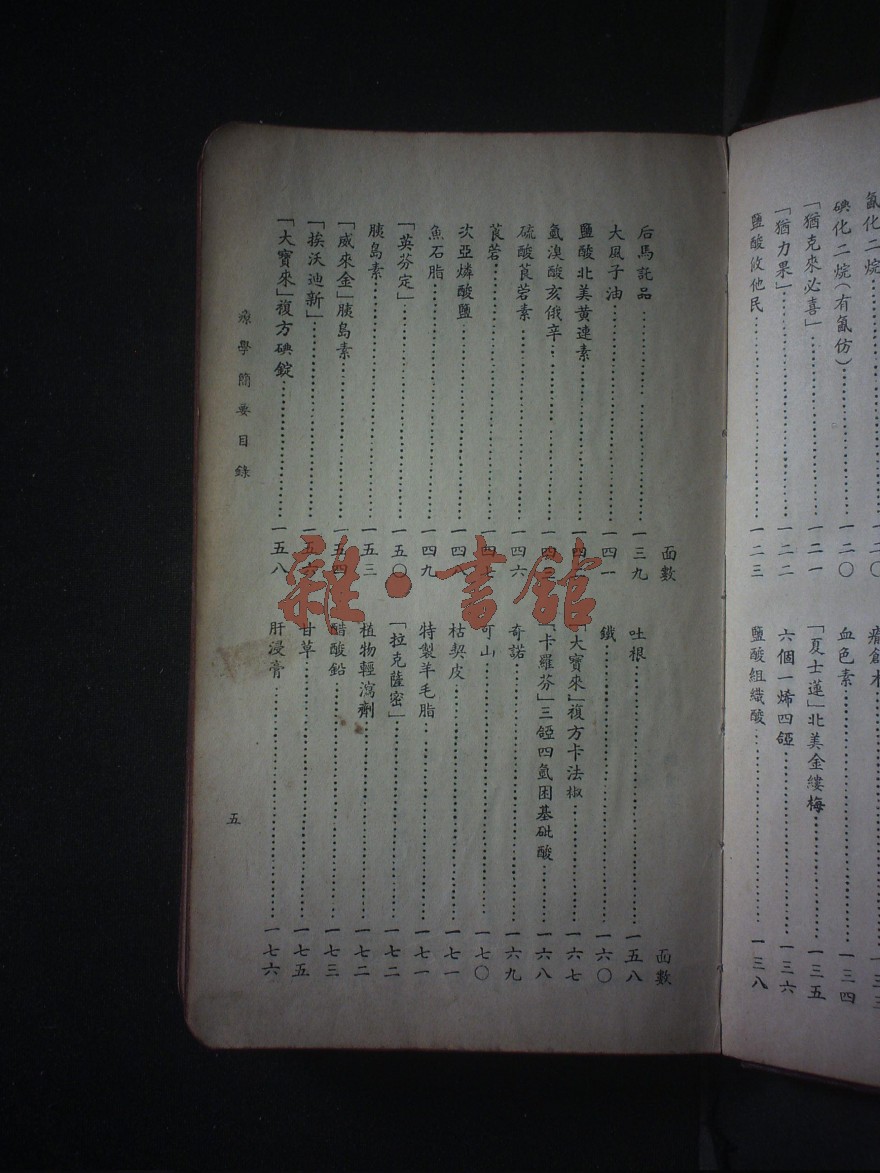 氰化二烷
一二〇
碘化二烷(有氰仿)
一二〇
「猶克來必喜」
一二一
「猶力果」
一二二
鹽酸攸他民
一二三
瘡創木
一三三
血色素
一三四
「夏士蓮」北美金縷梅
一三五
六個一烯四𨥙
一三六
鹽酸組織酸
一三八
面數
后馬託品
一三九
大風子油
一四一
鹽酸北美黃連素
氫溴酸亥俄辛
硫酸莨菪素
一四六
莨菪
一四七
次亞燐酸鹽
魚石脂
一四九
「英芬定」
一五〇
胰島素
一五三
「威來金」胰島素
一五四
「挨沃迪新」
一五六
「大寶來」複方碘錠
一五八
面數
吐根
一五八
鐵
一六〇
「大寶來」複方卡法椒
一六七
「卡羅芬」三
一六八
奇諾
一六九
可山
一七〇
枯契皮
一七一
特製羊毛脂
一七一
「拉克薩密」
一七二
植物輕瀉劑
一七二
醋酸鉛
一七三
甘草
一七五
肝浸膏
一七六
療學簡要目錄
五
雜·書館